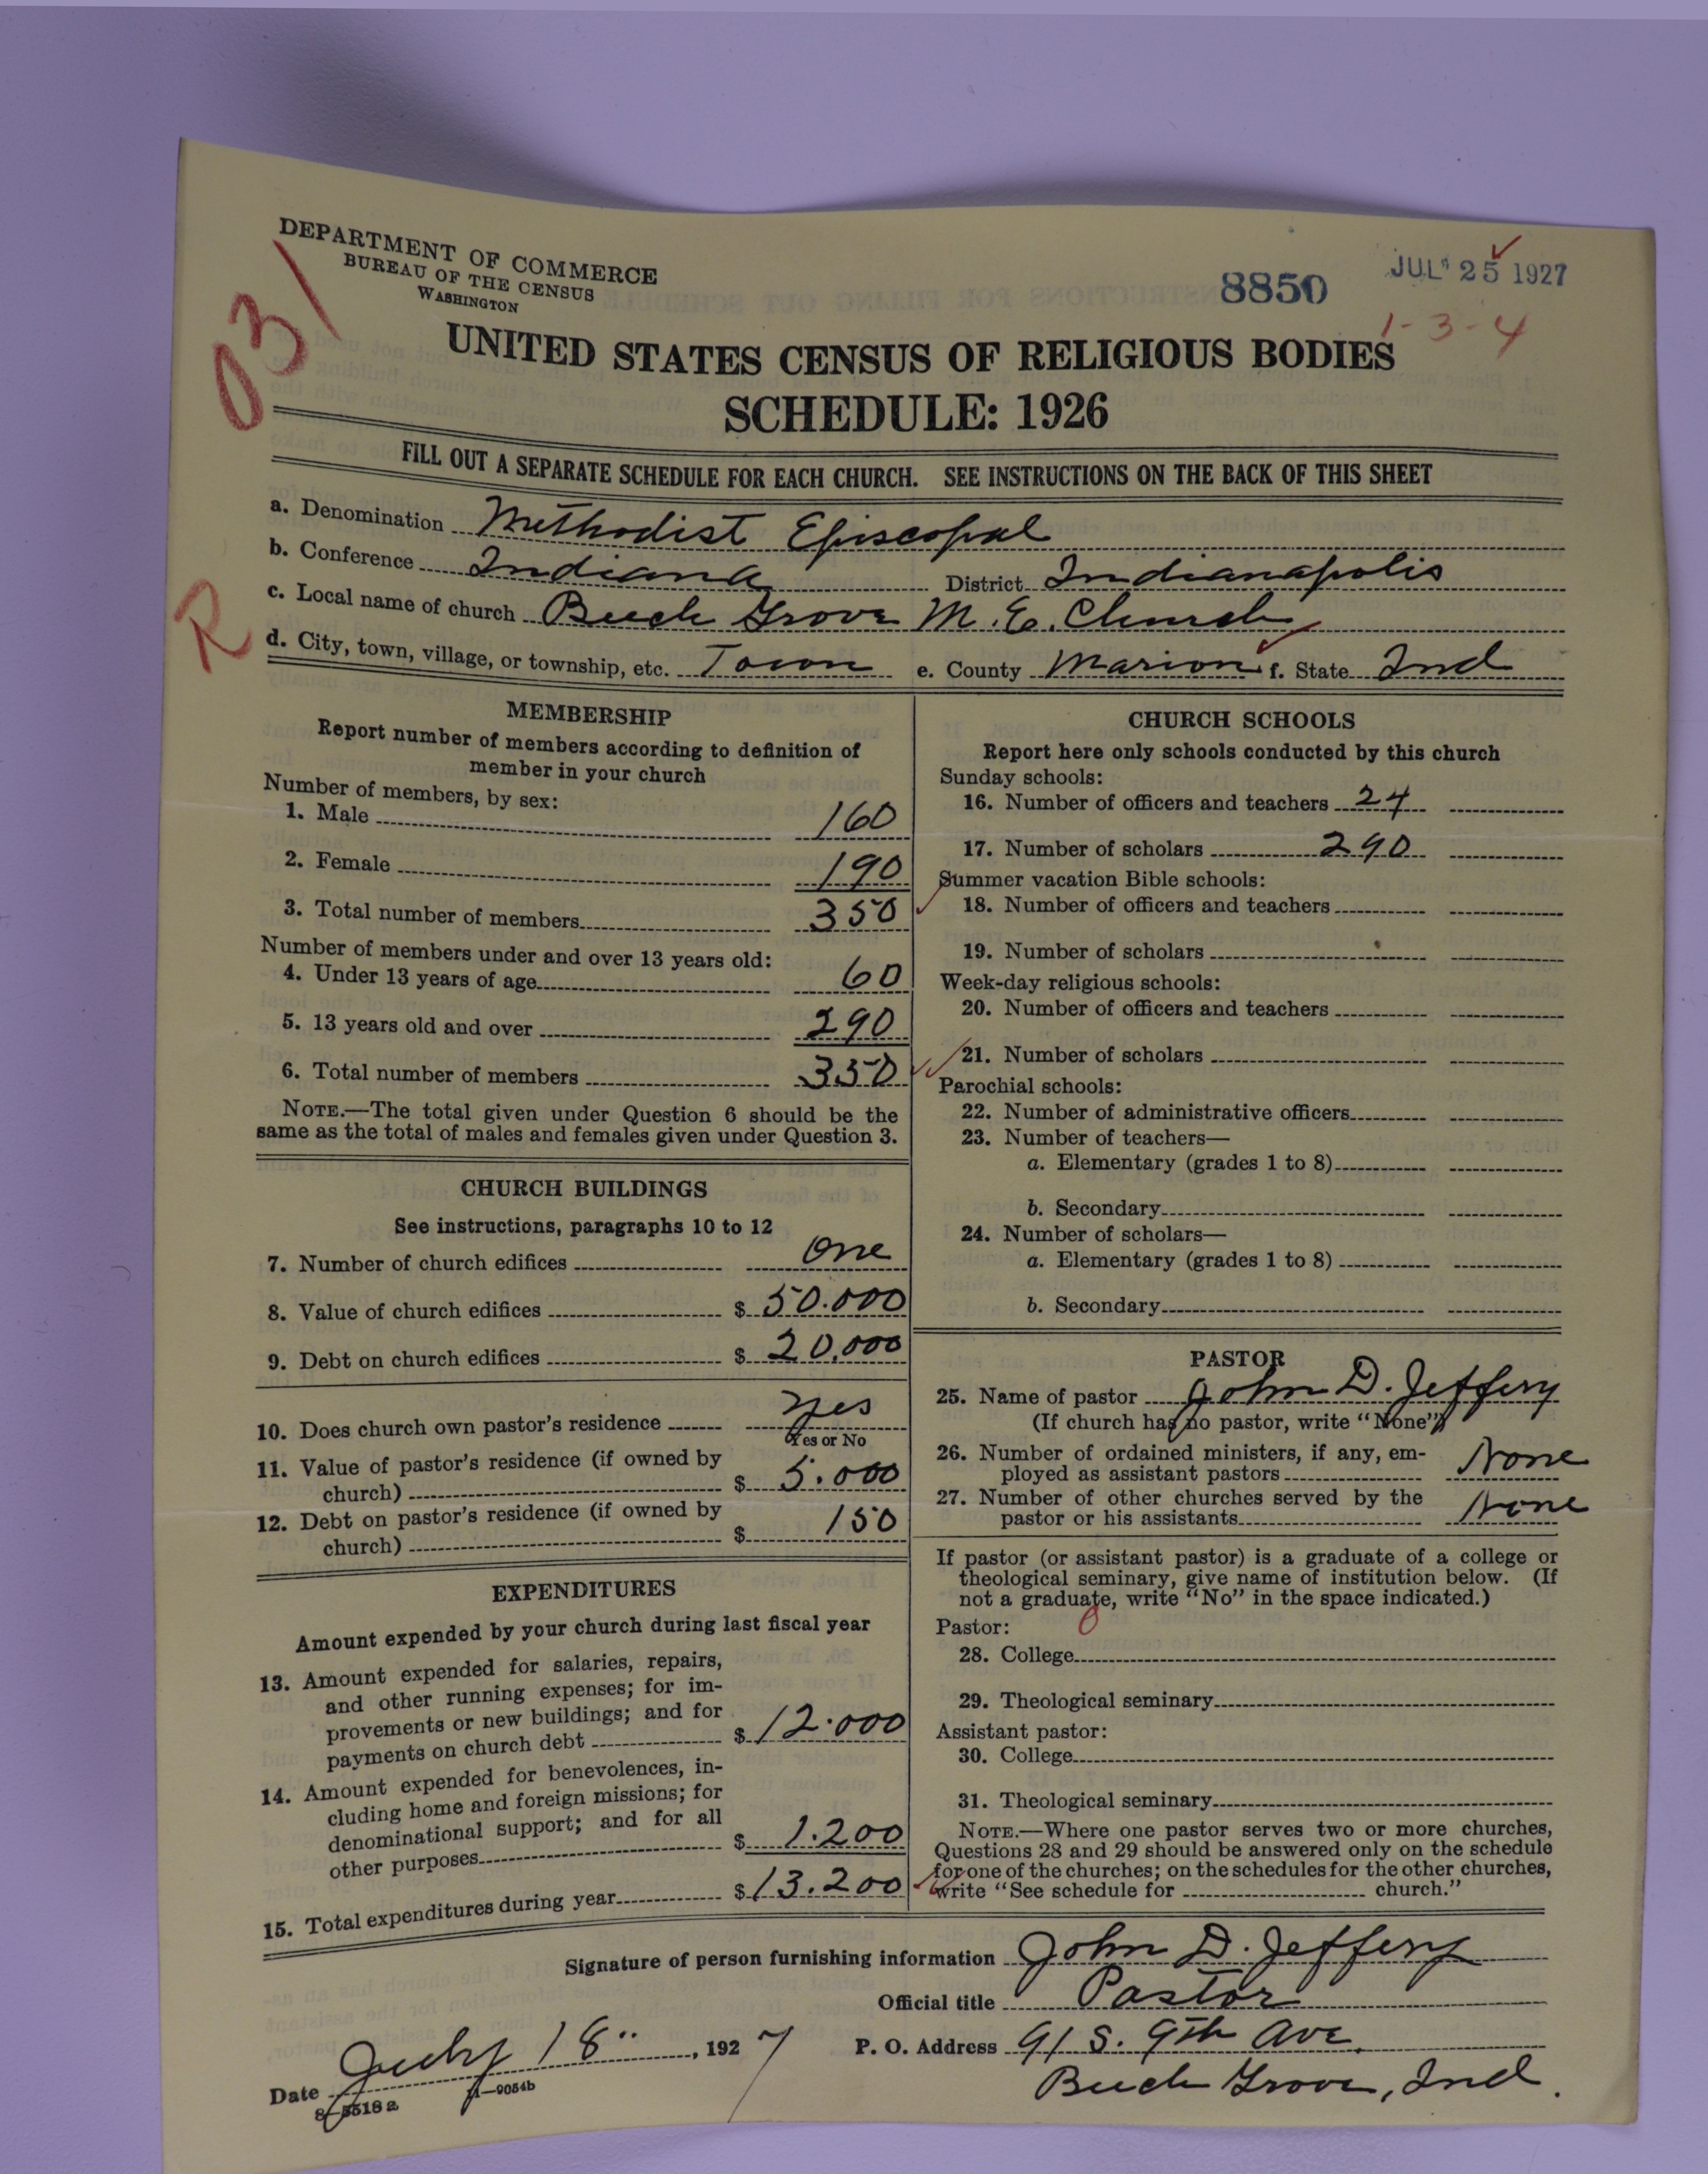 DEPARTMENT OF COMMERCE
BUREAU OF THE CENSUS
WASHINGTON
031
8850
JUL 25 1927
1-3-4
UNITED STATES CENSUS OF RELIGIOUS BODIES
SCHEDULE: 1926
FILL OUT A SEPARATE SCHEDULE FOR EACH CHURCH. SEE INSTRUCTIONS ON THE BACK OF THIS SHEET
a. Denomination Methodist Episcopal
b. Conference Indiana District Indianapolis
c. Local name of church Beech Grove M. E. Church
R
d. City, town, village, or township, etc. Town e. County Marion f. State Ind
MEMBERSHIP
Report number of members according to definition of
member in your church
Number of members, by sex:
1. Male 160
2. Female 190
3. Total number of members 350
Number of members under and over 13 years old:
4. Under 13 years of age 60
5. 13 years old and over 290
6. Total number of members 350
NOTE.—The total given under Question 6 should be the
same as the total of males and females given under Question 3.
CHURCH BUILDINGS
See instructions, paragraphs 10 to 12
7. Number of church edifices One
8. Value of church edifices $ 50.000
9. Debt on church edifices $ 20,000
10. Does church own pastor's residence Yes
Yes or No
11. Value of pastor's residence (if owned by
church) $ 5.000
12. Debt on pastor's residence (if owned by
church) $ 150
EXPENDITURES
Amount expended by your church during last fiscal year
13. Amount expended for salaries, repairs,
and other running expenses; for im-
provements or new buildings; and for
payments on church debt $ 12.000
14. Amount expended for benevolences, in-
cluding home and foreign missions; for
denominational support; and for all
other purposes $ 1.200
15. Total expenditures during year $ 13.200
CHURCH SCHOOLS
Report here only schools conducted by this church
Sunday schools:
16. Number of officers and teachers 24
17. Number of scholars 290
Summer vacation Bible schools:
18. Number of officers and teachers
19. Number of scholars
Week-day religious schools:
20. Number of officers and teachers
21. Number of scholars
Parochial schools:
22. Number of administrative officers
23. Number of teachers—
a. Elementary (grades 1 to 8)
b. Secondary
24. Number of scholars—
a. Elementary (grades 1 to 8)
b. Secondary
PASTOR
25. Name of pastor John D. Jeffery
(If church has no pastor, write "None")
26. Number of ordained ministers, if any, em-
ployed as assistant pastors None
27. Number of other churches served by the
pastor or his assistants None
If pastor (or assistant pastor) is a graduate of a college or
theological seminary, give name of institution below. (If
not a graduate, write "No" in the space indicated.)
Pastor: 0
28. College
29. Theological seminary
Assistant pastor:
30. College
31. Theological seminary
NOTE.—Where one pastor serves two or more churches,
Questions 28 and 29 should be answered only on the schedule
for one of the churches; on the schedules for the other churches,
write "See schedule for church."
Signature of person furnishing information John D. Jeffery
Official title Pastor
Date July 18", 1927
P. O. Address 91 S. 9th Ave.
Beech Grove, Ind.
8—5518 a
11—9054b